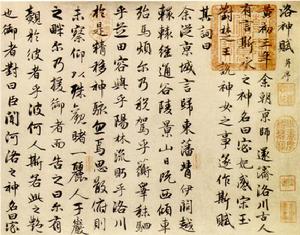 洛神賦 并序
黃初三年余朝京師還濟洛川古人
有言斯水之神名曰宓妃感宋玉
對楚王說神女之事遂作斯賦
其詞曰
余從京域言歸東藩背伊闕越
轘轅經通谷陵景山日既西傾車
殆馬煩尔乃稅駕乎蘅皋秣駟
乎芝田容與乎陽林流眄乎洛川
於是精移神駭忽焉思散俯則
未察仰以殊觀覩一麗人于巖
之畔尔乃援御者而告之曰尔有
覿於彼者乎彼何人斯若此之艷
也御者對曰臣聞河洛之神名曰宓